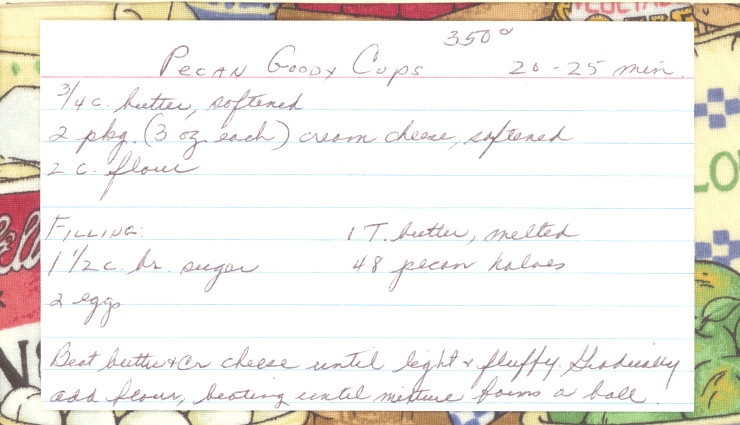 350°
Pecan Goody Cups 20-25 min.
3/4 c. butter, softened
2 pkg. (3 oz. each) cream cheese, softened
2 c. flour
Filling: 1 T. butter, melted
1 1/2 c. br. sugar 48 pecan halves
2 eggs
Beat butter & cr cheese until light & fluffy. Gradually
add flour, beating until mixture forms a ball.